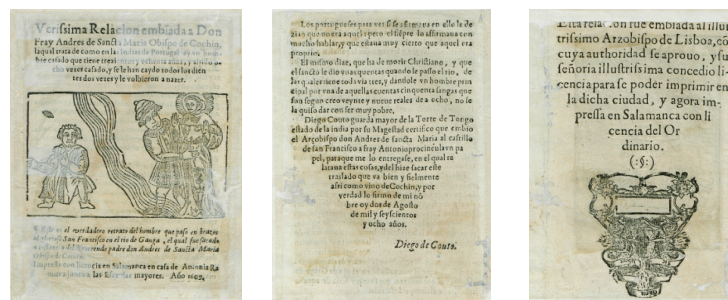 Verissima Relacion embiada a Don
Fray Andres de Sancta Maria Obispo de Cochin,
la qual trata de como en la Indias de Portugal ay un hom-
bre casado que tiene trezientos y ochenta años, y a sido o-
cho vezes casado, y se le han caydo todos los dien
tes dos vezes y le volbieron a nacer.
es el verdadero retrato del hombre que paso en braços
San Francisco en el rio de Ganga, el qual fue sacado
padre don Andres de Sancta Maria
Impressa con licencia en Salamanca en casa de Antonia Ra
mirez las Escuelas mayores. Año
Los portugueses para ver si se afirmaua en ello le de
zian que moria aquel, pero el siẽpre lo affirmaua con
mucho hablar, y que estaua muy cierto que aquel era
proprio.
El mismo dize, que ha de morir Christiano, y que
el sancto le dio unas quentas quando le passo el rio, de
las quales tiene todavia tres, y dandole un hombre prin
cipal por una de aquellas cuentas cinquenta sangas que
son segun creo veynte y nueue reales de a ocho, no se
la quiso dar con ser muy pobre.
Diego Couto guarda mayor de la Torre de Tongo
estado de la india por su Magestad certifico que embio
el Arçobispo don Andres de sancta Maria al castillo
de san Francisco a fray Antonio
pel, para que me lo entregase, en el qual re
lataua estas cosas, y del hize sacar este
traslado que va bien y fielmente
assi como vino de Cochin, y por
verdad lo firmo de mi nõ
bre oy dos de Agosto
de mil y seyscientos
y ocho años.
Diego de Couto.
Esta relacion fue embiada al illus
trissimo Arzobispo de Lisboa, cõ
cuya authoridad se aprouo, y su
señoria illustrissima concedio li-
cencia para se poder imprimir en
la dicha ciudad, y agora im-
pressa en Salamanca con li
cencia del Or
dinario.
(:§:)